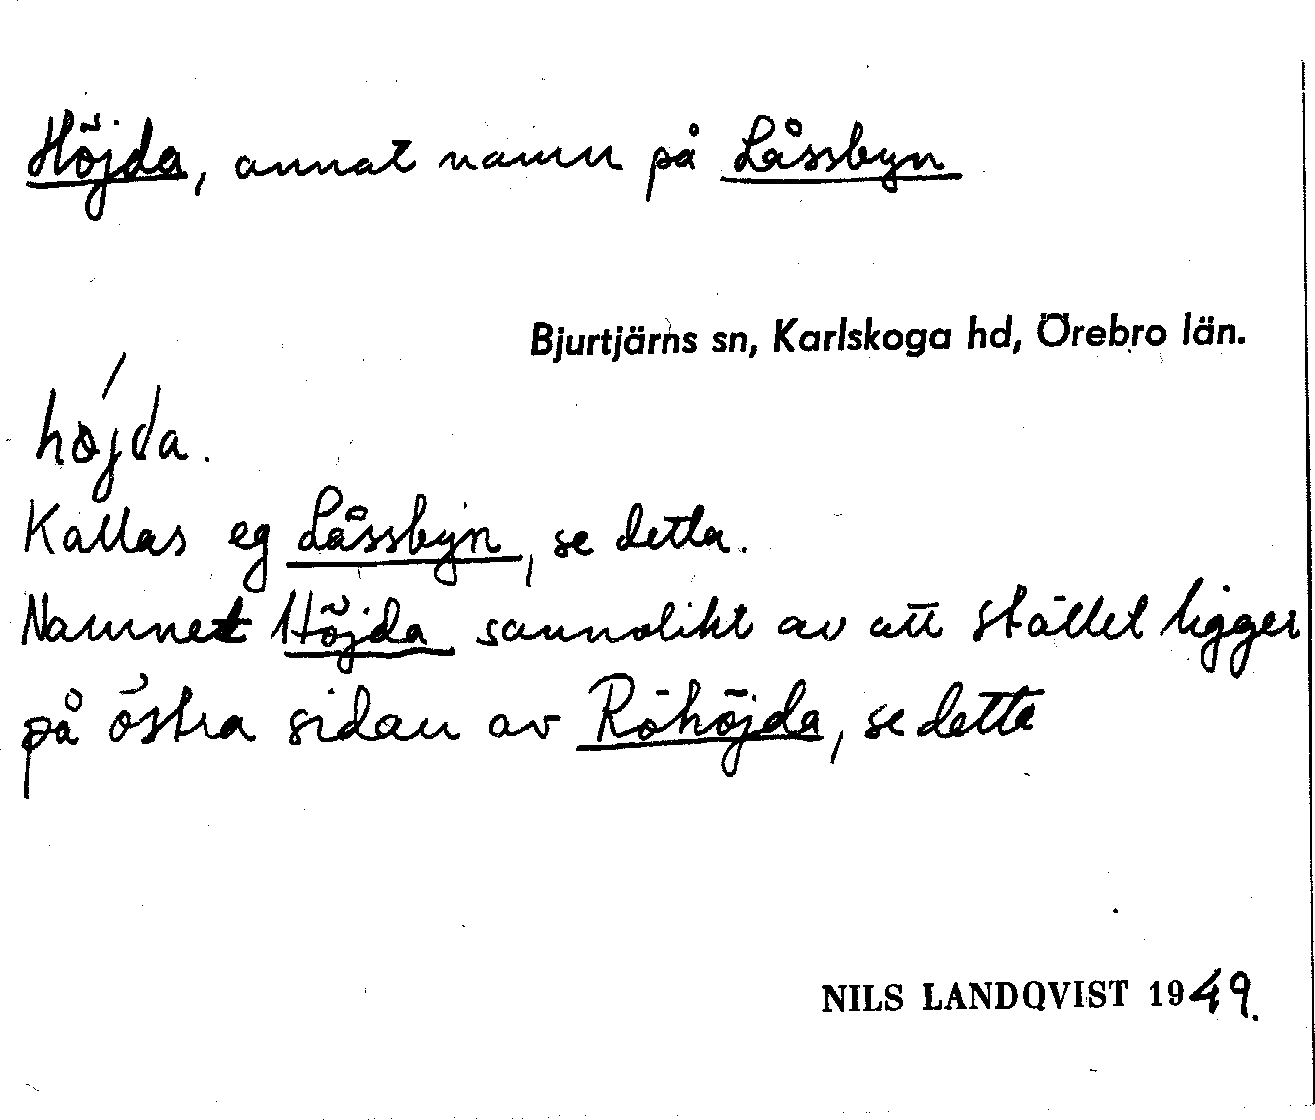 Höjda, annat namn på Låssbyn
Bjurtjärns sn, Karlskoga hd, Örebro län.
höjda.
Kallas eg Låssbyn, se detta.
Namnet Höjda sannolikt av att stället ligger
på östra sidan av Röhöjda, se detta
NILS LANDQVIST 1949.